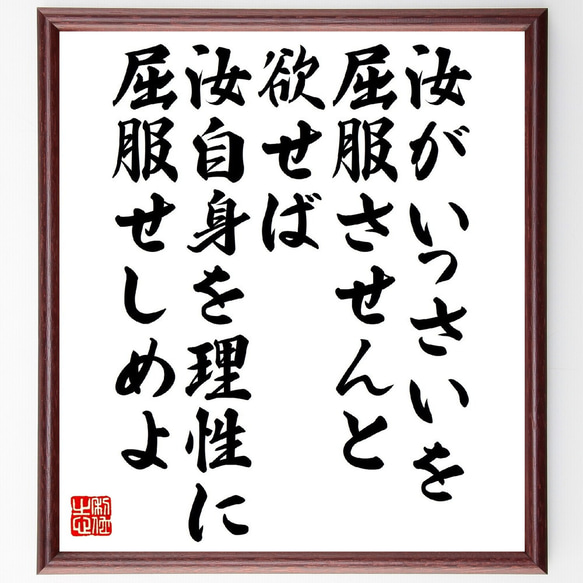 汝がいっさいを
屈服させんと
欲せば
汝自身を理性に
屈服せしめよ